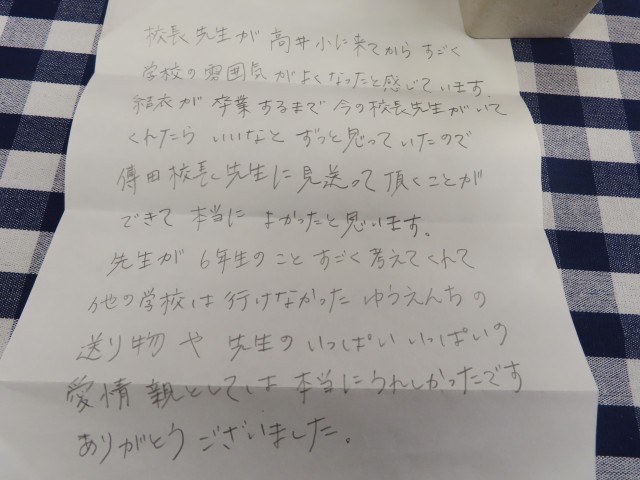 校長先生が 高井小に来てから すごく
学校の雰囲気がよくなったと感じています.
結衣が 卒業するまで 今の校長先生がいて
くれたら いいなと ずっと思っていたので
傳田校長先生に見送って 頂くことが
できて 本当に よかったと思います。
先生が 6年生のこと すごく 考えてくれて
他の学校は 行けなかった ゆうえんちの
送り物や 先生の いっぱい いっぱいの
愛情 親としては 本当にうれしかったです
ありがとう ございました。